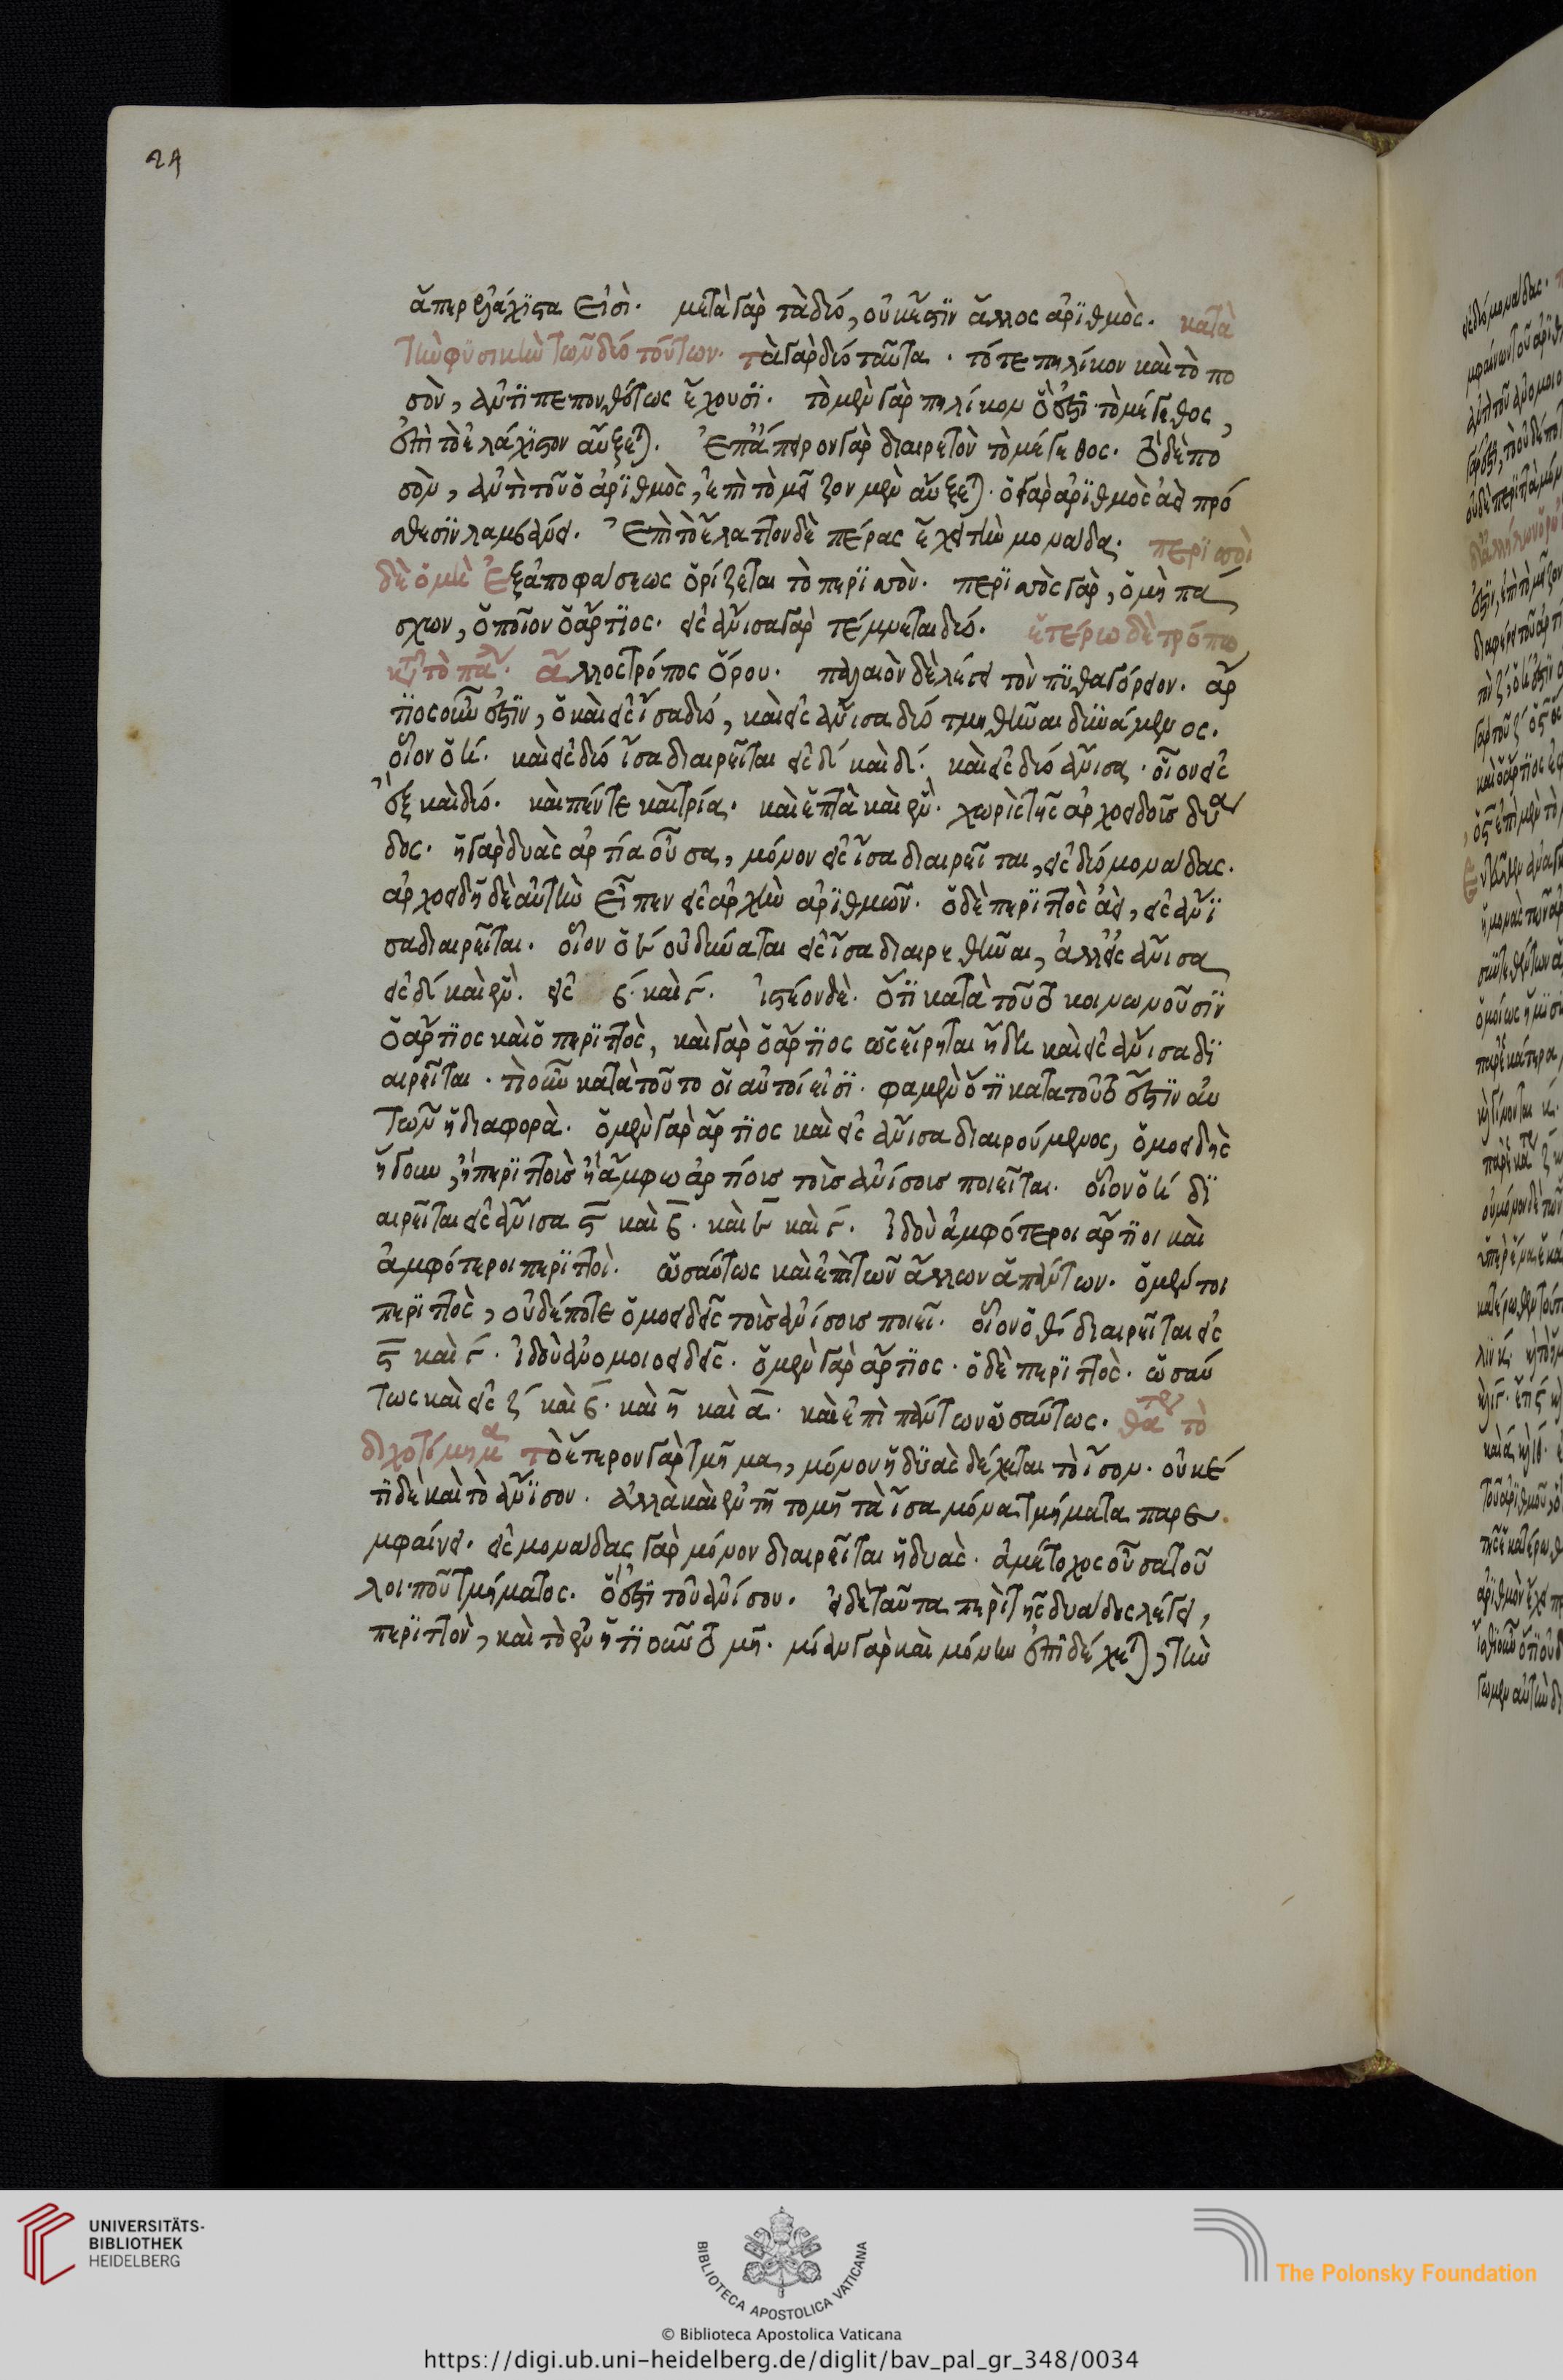 24
ἅπερ ἐλάχιστα εἰσὶ. μετὰ γὰρ τὰ δύο, οὐκ ἔστιν ἄλλος ἀριθμὸς. κατὰ
τὴν φυσικὴν τῶν δύο τούτων. τὰ γὰρ δύο ταῦτα. τό τε πηλίκον καὶ τὸ πο
σὸν, ἀντιπεπονθότως ἔχουσι. τὸ μὲν γὰρ πηλίκον ὅ ἐστι τὸ μέγεθος,
ἐπὶ τὸ ἐλάχιστον αὔξεται. ἐπ' ἄπειρον γὰρ διαιρετὸν τὸ μέγεθος. ὁ δὲ πο
σὸν, ἀντὶ τοῦ ὁ ἀριθμὸς, ἐπὶ τὸ μεῖζον μὲν αὔξεται. ὁ γὰρ ἀριθμὸς ἀεὶ πρό
σθεσιν λαμβάνει. Ἐπὶ τὸ ἔλαττον δὲ πέρας ἔχει τὴν μονάδα. περισσὸς
δὲ ὁ μὴ Ἐξ ἀποφάσεως ὁρίζεται τὸ περισσὸν. περισσὸς γὰρ, ὁ μὴ πά
σχων, ὁποῖον ὁ ἄρτιος. εἰς ἄνισα γὰρ τέμνεται δύο. ἑτέρω δὲ τρόπω
κατὰ τὸ πᾶν. ἄλλος τρόπος ὅρου. παλαιὸν δὲ λέγει τὸν πυθαγόρειον. ἄρ
τιος οὖν ἐστὶν, ὁ καὶ εἰς ἴσα δύο, καὶ εἰς ἄνισα δύο τμηθῆναι δυνάμενος.
οἷον ὁ ι. καὶ εἰς δύο ἴσα διαιρεῖται εἰς δ καὶ δ. καὶ εἰς δύο ἄνισα. οἷον εἰς
ἓξ καὶ δύο. καὶ πέντε καὶ τρία. καὶ ἑπτὰ καὶ ἓν. χωρὶς τῆς ἀρχοειδοῦς δυά
δος. ἡ γὰρ δυὰς ἀρτία οὖσα, μόνον εἰς ἴσα διαιρεῖται, εἰς δύο μονάδας.
ἀρχοειδῆ δὲ αὐτὴν εἶπεν εἰς ἀρχὴν ἀριθμῶν. ὁ δὲ περιττὸς ἀεὶ, εἰς ἄνι
σα διαιρεῖται. οἷον ὁ ε οὐ δύναται εἰς ἴσα διαιρεθῆναι, ἀλλ' εἰς ἄνισα
εἰς δ καὶ ἓν. εἰς β. καὶ γ. ἰστέον δὲ. ὅτι κατὰ τοῦτο κοινωνοῦσιν
ὁ ἄρτιος καὶ ὁ περιττὸς, καὶ γὰρ ὁ ἄρτιος ὡς εἴρηται ἤδη καὶ εἰς ἄνισα δι
αιρεῖται. τὶ οὖν κατὰ τοῦτο οἱ αὐτοί εἰσι. φαμὲν ὅτι κατὰ τοῦτό ἐστιν αὐ
τῶν ἡ διαφορὰ. ὁ μὲν γὰρ ἄρτιος καὶ εἰς ἄνισα διαιρούμενος, ὁμοειδῆς
ἤγουν, ἢ περιττοῖς ἢ ἄμφω ἀρτίοις τοῖς ἀνίσοις ποιεῖται. οἷον ὁ η δι
αιρεῖται εἰς ἄνισα ς καὶ β. καὶ ε καὶ γ. ἰδοὺ ἀμφότεροι ἄρτιοι καὶ
ἀμφότεροι περιττοὶ. ὡσαύτως καὶ ἐπὶ τῶν ἄλλων ἁπάντων. ὁ μέν τοι
περιττὸς, οὐδέποτε ὁμοειδεῖς τοῖς ἀνίσοις ποιεῖ. οἷον ὁ θ διαιρεῖται εἰς
ς καὶ γ. ἰδοὺ ἀνομοιοειδεῖς. ὁ μὲν γὰρ ἄρτιος. ὁ δὲ περιττὸς. ὡσαύ
τως καὶ εἰς ζ καὶ β. καὶ η καὶ α. καὶ ἐπὶ πάντων ὡσαύτως. θάτερον τὸ
διχοτόμημα τὸ ἕτερον γὰρ τμῆμα, μόνον ἡ δυὰς δέχεται τὸ ἴσον. οὐκέ
τι δὲ καὶ τὸ ἄνισον. ἀλλὰ καὶ ἐν τῆ τομῆ τὰ ἴσα μόνα τμήματα παρε
μφαίνει. εἰς μονάδας γὰρ μόνον διαιρεῖται ἡ δυὰς. ἀμέτοχος οὖσα τοῦ
λοιποῦ τμήματος. ὅ ἐστι τοῦ ἀνίσου. εἰ δὲ ταῦτα περὶ τῆς δυάδος λέγει,
περιττὸν, καὶ τὸ ἐν ᾗτινι οὖν τομῆ. μίαν γὰρ καὶ μόνην ἐπιδέχεται, τὴν
UNIVERSITÄTS-
BIBLIOTHEK
HEIDELBERG
BIBLIOTECA APOSTOLICA VATICANA
The Polonsky Foundation
© Biblioteca Apostolica Vaticana
https://digi.ub.uni-heidelberg.de/diglit/bav_pal_gr_348/0034